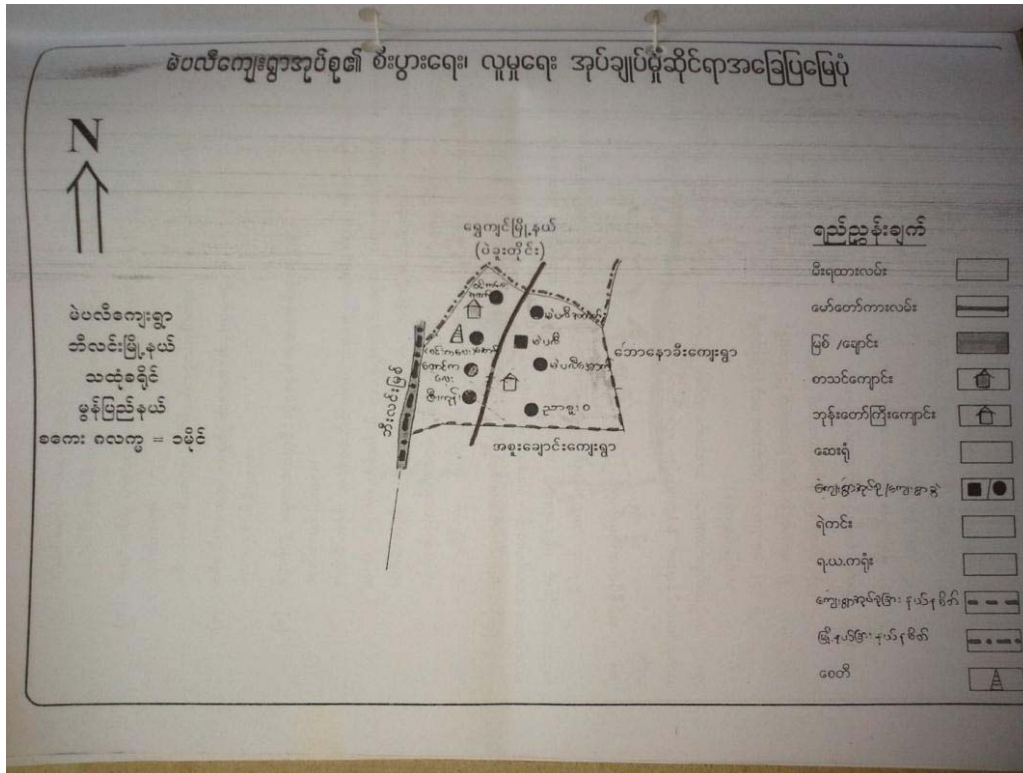 မဲပလီကျေးရွာအုပ်စု၏ စီးပွားရေး၊ လူမှုရေး အုပ်ချုပ်မှုဆိုင်ရာအခြေပြမြေပုံ
N
မဲပလီကျေးရွာ
ဘီလင်းမြို့နယ်
သထုံခရိုင်
မွန်ပြည်နယ်
စကေး ၈လက္မ = ၁မိုင်
ရွှေကျင်မြို့နယ်
(ပဲခူးတိုင်း)
မဲပလီ
ဘောနောခီးကျေးရွာ
ဘီးလင်းမြစ်
အစူးချောင်းကျေးရွာ
ရည်ညွှန်းချက်
မီးရထားလမ်း
မော်တော်ကားလမ်း
မြစ် /ချောင်း
စာသင်ကျောင်း
ဘုန်းတော်ကြီးကျောင်း
ဆေးရုံ
ကျေးရွာအုပ်စု/ကျေးရွာ
ရဲကင်း
ရ.ယ.ကရုံး
ကျေးရွာအုပ်စုခြားနယ်နမိတ်
မြို့နယ်ခြားနယ်နမိတ်
စေတီ